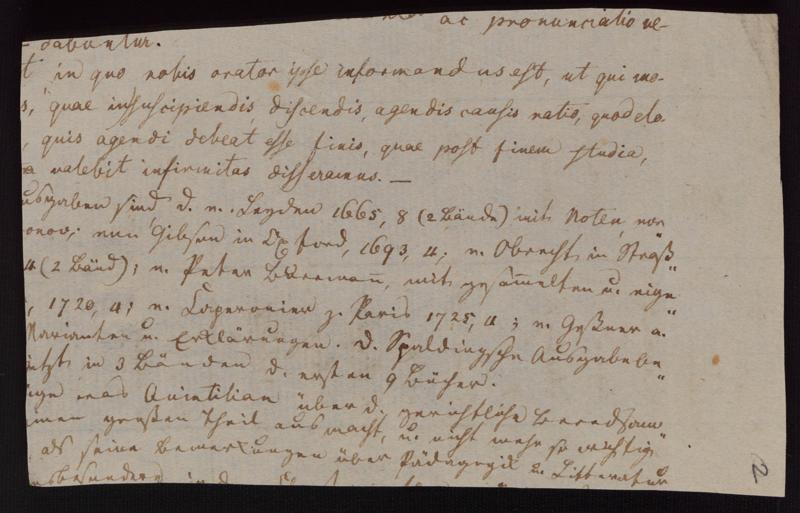 ac pronunciatio ve-
dabuntur.
t in quo nobis orator ipse informandus est, ut qui mo-
s, quae in suscipiendis, discendis, agendis causis ratio, quod elo-
, quis agendi debeat esse finis, quae post finem studia,
valebit infirmitas disseramus. —
usgaben sind d. v. Leyden 1665, 8 (2 Bände) mit Noten, vor
onov; von Gibson in Oxford, 1693, 4; v. Obrecht in Straß
4 (2 Bänd); v. Peter Burmann, mit gesammelten u. eige
, 1720, 4; v. Caperonier z. Paris 1725, 4; v. Geßner a.
Varianten u. Erklärungen. d. Spaldingsche Ausgabe be
itzt in 3 Bänden d. ersten 9 Bücher.
ige was Quintilian über d. gerichtliche Beredsam
men großen Theil ausmacht, u. nicht mehr so wichtig
als seine Bemerkungen über Pädagogik u. Litteratur
nsbesondere in
2